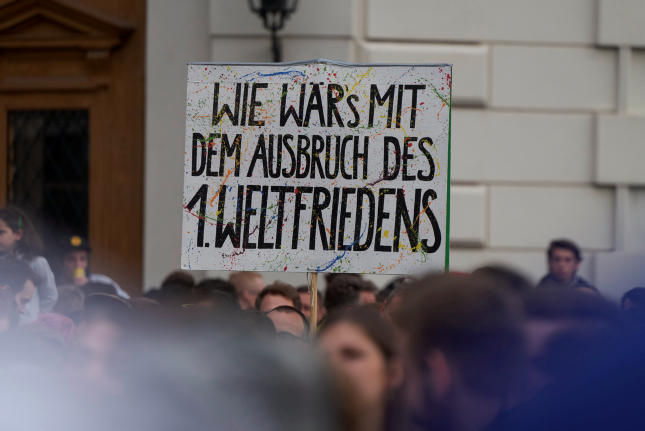 WIE WÄR's MIT
DEM AUSBRUCH DES
1. WELTFRIEDENS